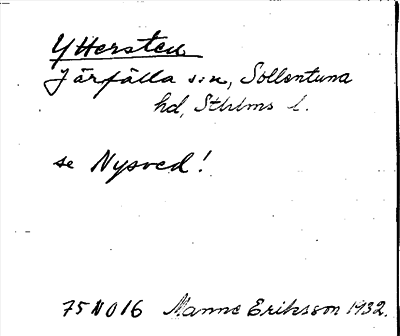 Yttersten
Järfälla s:n, Sollentuna
hd, Sthlms l.
se Nysved!
75 N 016 Manne Eriksson 1932.